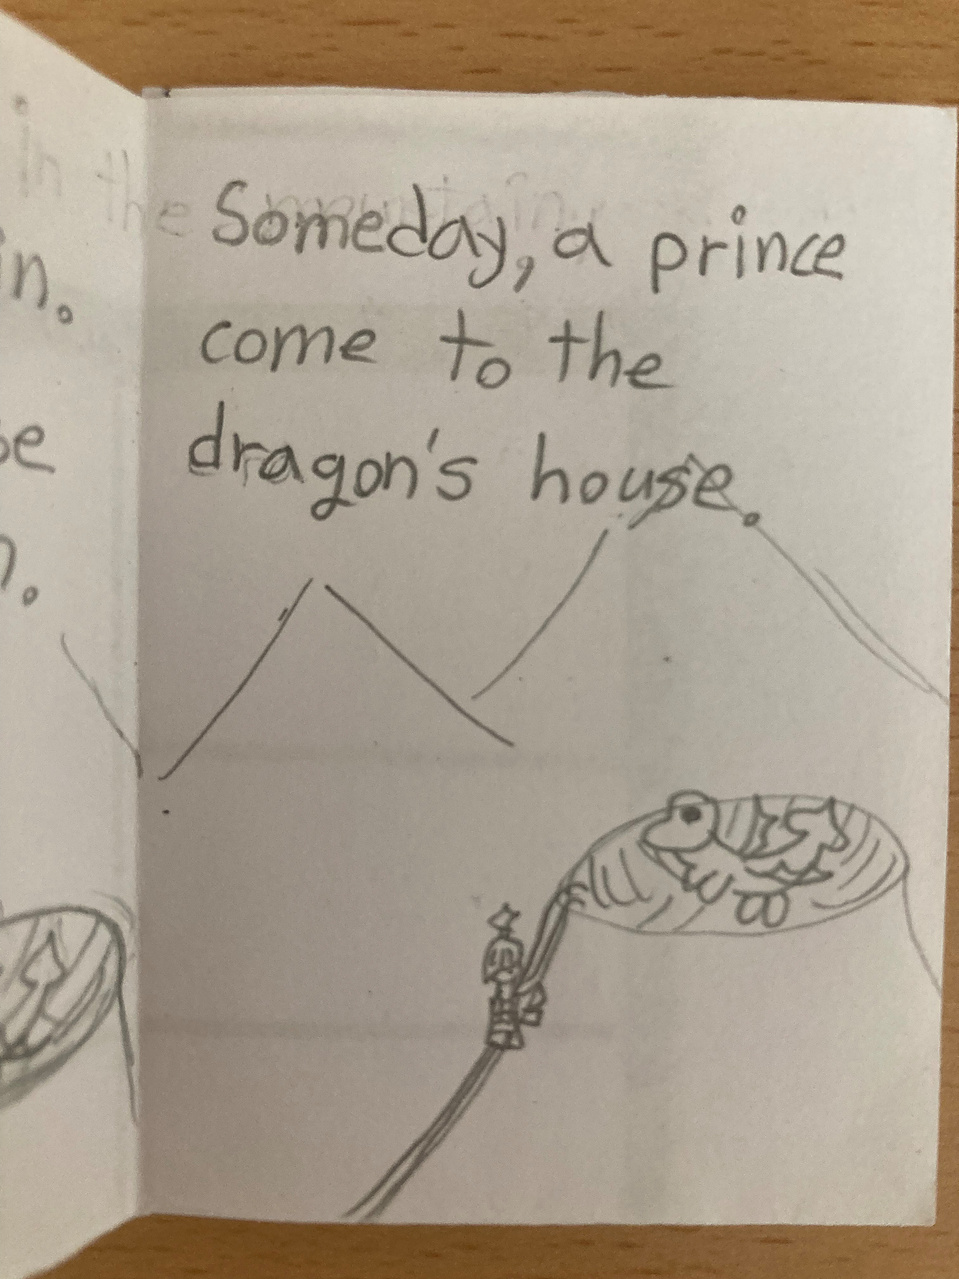 in the
in.
Someday, a prince
come to the
dragon's house.